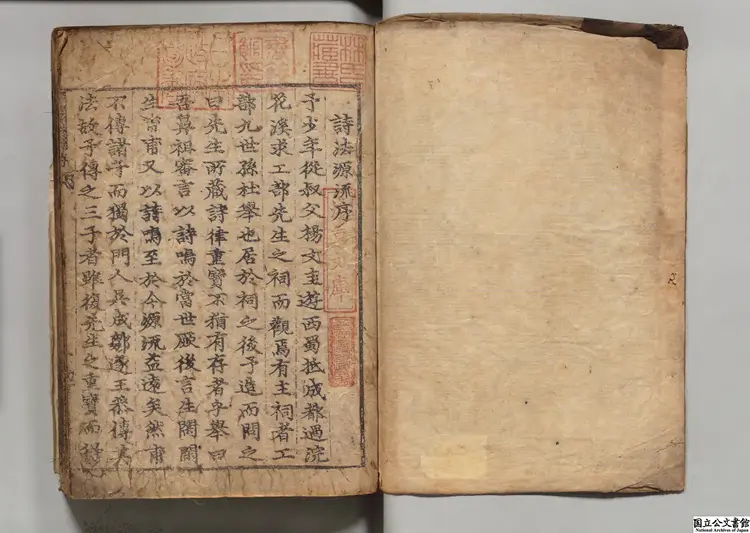 詩法源流序
予少年從叔父楊文圭遊西蜀抵成都過浣
花溪求工部先生之祠而觀焉有主祠者工
部九世孫杜舉也居於祠之後予造而問之
曰先生所藏詩律重寶不猶有存者乎舉曰
吾鼻祖審言以詩鳴於當世厥後言生閑閑
生甫甫又以詩鳴至於今源流益遠矣然甫
不傳諸子而獨於門人吳成鄒遂王恭傳其
法故予傳之三子者雖復先生之重寶而得
國立公文書館
National Archives of Japan